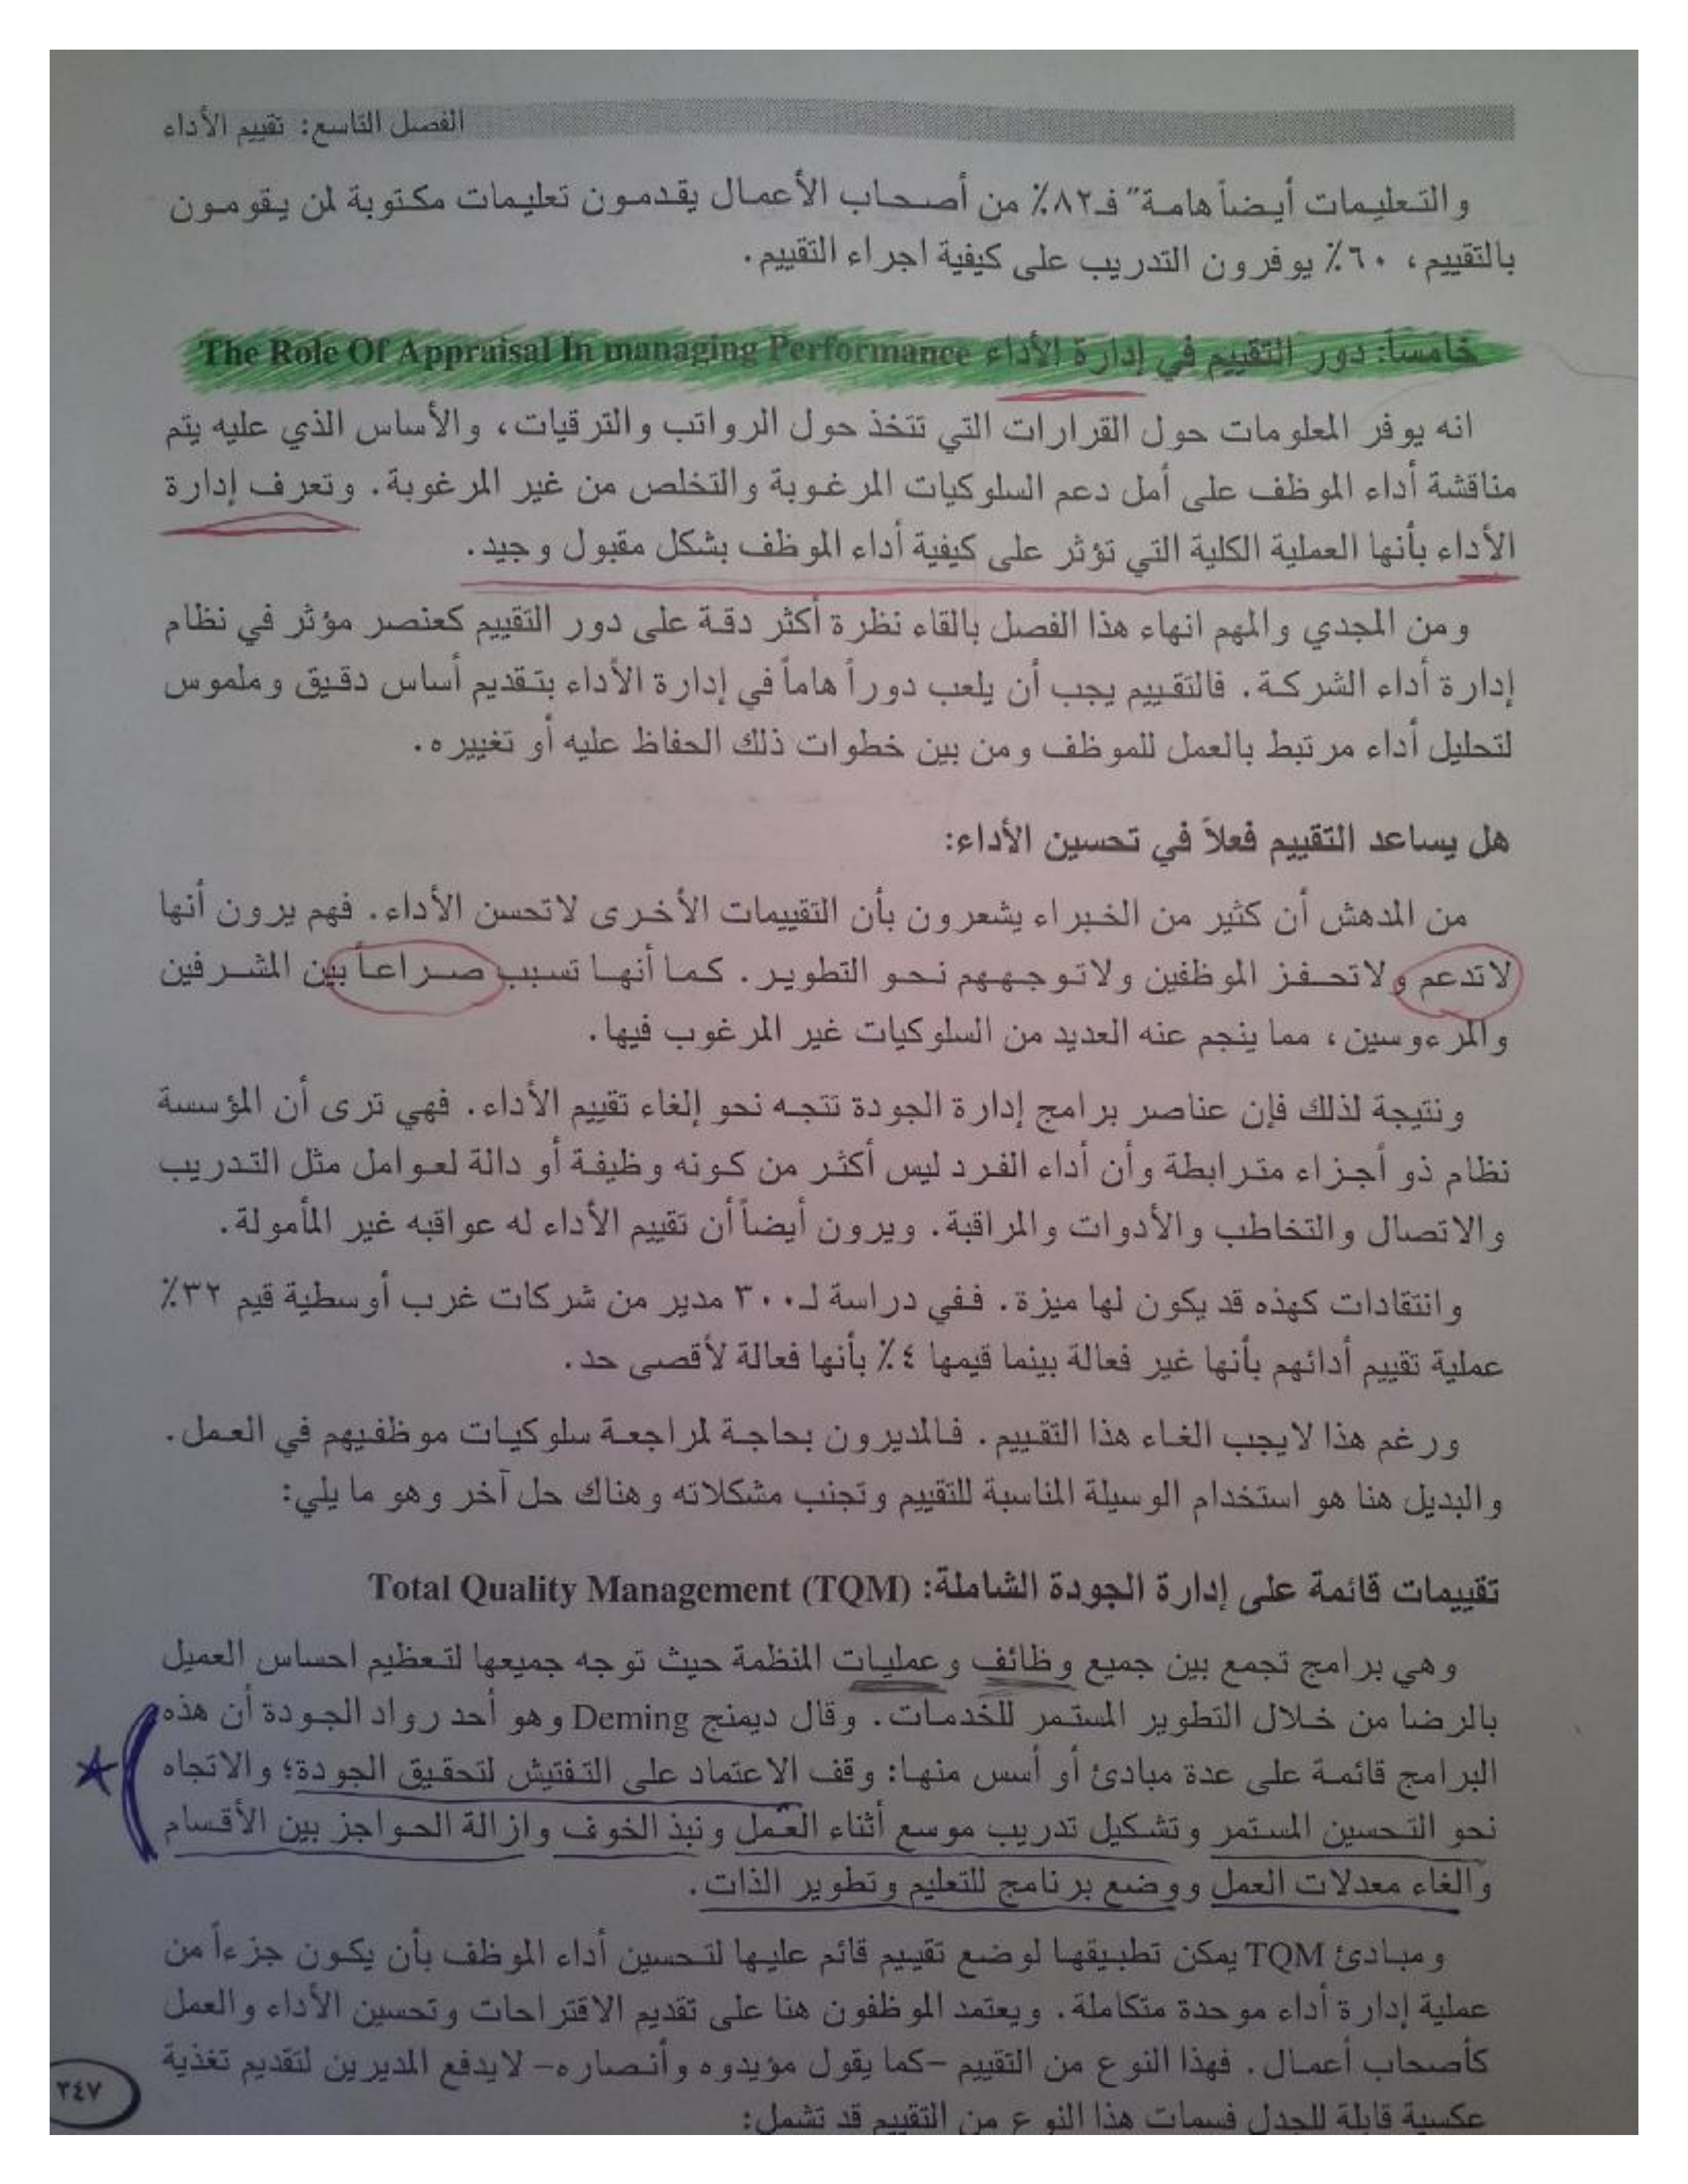 الفصل التاسع: تقييم الأداء
والتعليمات أيضاً هامة" فـ٨٢٪ من أصحاب الأعمال يقدمون تعليمات مكتوبة لمن يقومون
بالتقييم، ٦٠٪ يوفرون التدريب على كيفية اجراء التقييم.
خامساً: دور التقييم في إدارة الأداء The Role Of Appraisal In managing Performance
انه يوفر المعلومات حول القرارات التي تتخذ حول الرواتب والترقيات، والأساس الذي عليه يتم
مناقشة أداء الموظف على أمل دعم السلوكيات المرغوبة والتخلص من غير المرغوبة. وتعرف إدارة
الأداء بأنها العملية الكلية التي تؤثر على كيفية أداء الموظف بشكل مقبول وجيد.
ومن المجدي والمهم انهاء هذا الفصل بالقاء نظرة أكثر دقة على دور التقييم كعنصر مؤثر في نظام
إدارة أداء الشركة. فالتقييم يجب أن يلعب دوراً هاماً في إدارة الأداء بتقديم أساس دقيق وملموس
لتحليل أداء مرتبط بالعمل للموظف ومن بين خطوات ذلك الحفاظ عليه أو تغييره.
هل يساعد التقييم فعلاً في تحسين الأداء:
من المدهش أن كثير من الخبراء يشعرون بأن التقييمات الأخرى لاتحسن الأداء. فهم يرون أنها
لاتدعم ولاتحفز الموظفين ولاتوجههم نحو التطوير. كما أنها تسبب صراعاً بين المشرفين
والمرءوسين، مما ينجم عنه العديد من السلوكيات غير المرغوب فيها.
ونتيجة لذلك فإن عناصر برامج إدارة الجودة تتجه نحو إلغاء تقييم الأداء. فهي ترى أن المؤسسة
نظام ذو أجزاء مترابطة وأن أداء الفرد ليس أكثر من كونه وظيفة أو دالة لعوامل مثل التدريب
والاتصال والتخاطب والأدوات والمراقبة. ويرون أيضاً أن تقييم الأداء له عواقبه غير المأمولة.
وانتقادات كهذه قد يكون لها ميزة. ففي دراسة لـ٣٠٠ مدير من شركات غرب أوسطية قيم ٣٢٪
عملية تقييم أدائهم بأنها غير فعالة بينما قيمها ٤٪ بأنها فعالة لأقصى حد.
ورغم هذا لايجب الغاء هذا التقييم. فالمديرون بحاجة لمراجعة سلوكيات موظفيهم في العمل.
والبديل هنا هو استخدام الوسيلة المناسبة للتقييم وتجنب مشكلاته وهناك حل آخر وهو ما يلي:
تقييمات قائمة على إدارة الجودة الشاملة: Total Quality Management (TQM)
وهي برامج تجمع بين جميع وظائف وعمليات المنظمة حيث توجه جميعها لتعظيم احساس العميل
بالرضا من خلال التطوير المستمر للخدمات. وقال ديمنج Deming وهو أحد رواد الجودة أن هذه
البرامج قائمة على عدة مبادئ أو أسس منها: وقف الاعتماد على التفتيش لتحقيق الجودة؛ والاتجاه
نحو التحسين المستمر وتشكيل تدريب موسع أثناء العمل ونبذ الخوف وازالة الحواجز بين الأقسام
والغاء معدلات العمل ووضع برنامج للتعليم وتطوير الذات.
ومبادئ TQM يمكن تطبيقها لوضع تقييم قائم عليها لتحسين أداء الموظف بأن يكون جزءاً من
عملية إدارة أداء موحدة متكاملة. ويعتمد الموظفون هنا على تقديم الاقتراحات وتحسين الأداء والعمل
كأصحاب أعمال. فهذا النوع من التقييم -كما يقول مؤيدوه وأنصاره- لايدفع المديرين لتقديم تغذية
عكسية قابلة للجدل فسمات هذا النوع من التقييم قد تشمل:
٣٤٧